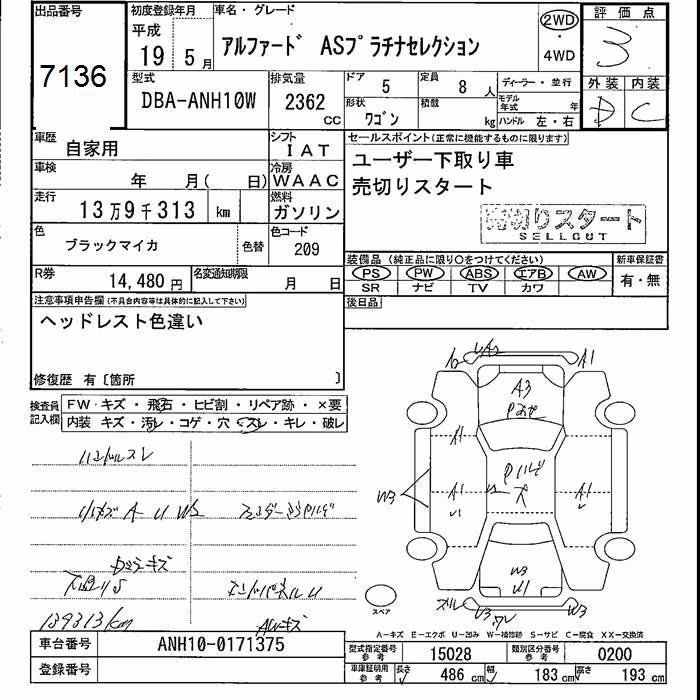 出品番号
7136
初度登録年月
平成
19 5月
車名・グレード
アルファード ASプラチナセレクション
2WD
・
4WD
評価点
3
外装 内装
D C
型式
DBA-ANH10W
排気量
2362
cc
ドア 5
定員 8人
形状 ワゴン
積載 kg
ディーラー・並行
モデル年式 年
ハンドル 左・右
車歴 自家用
シフト IAT
車検 年 月( 日)
冷房 WAAC
走行 13万9千313 km
燃料 ガソリン
色 ブラックマイカ 色替
色コード 209
R券 14,480円
名変通知期限 月 日
セールスポイント(正常に機能するものに限ります)
ユーザー下取り車
売切りスタート
売切りスタート
SELLOUT
装備品 (純正品に限り○をつけてください)
PS PW ABS エアB AW
SR ナビ TV カワ
新車保証書
有・無
後日品
注意事項申告欄(不具合内容等は具体的に記入して下さい)
ヘッドレスト色違い
修復歴 有〔箇所 〕
検査員記入欄
FW・キズ・飛石・ヒビ割・リペア跡・×要
内装 キズ・汚レ・コゲ・穴・スレ・キレ・破レ
ハンドルスレ
139313km
A2
A1
A3
A1
W3
A1
A1
W3
U1
スレ
U3
W3
スペア
A-キズ E-エクボ U-凹み W-補修跡 S-サビ C-腐食 XX-交換済
車台番号 ANH10-0171375
登録番号
型式指定番号 参考 15028
類別区分番号 参考 0200
車庫証明用 参考 長さ 486 cm 幅 183 cm 高さ 193 cm